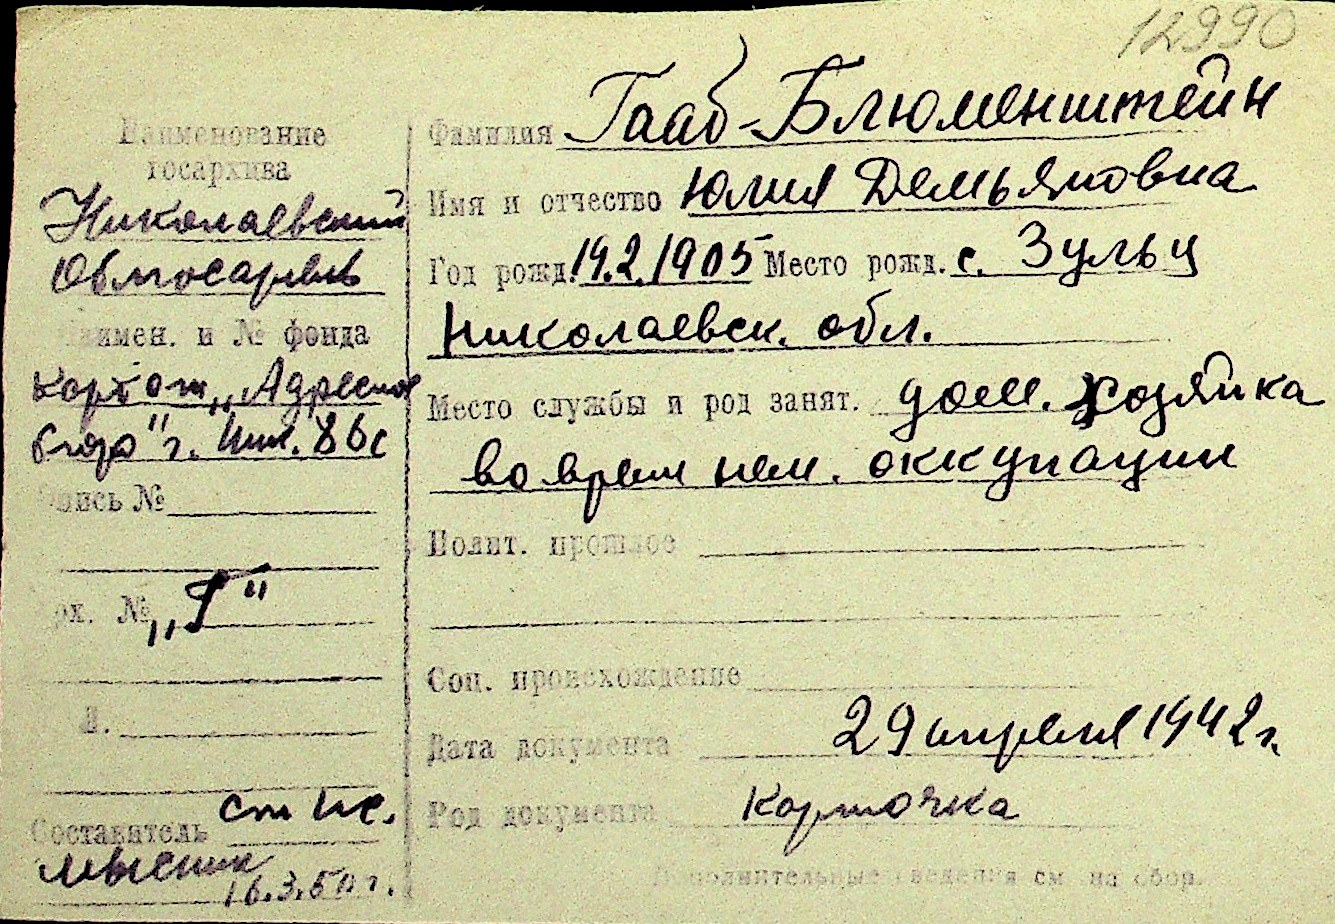 12990
Наименование
госархива
Николаевский
Облгосархив
Наимен. и № фонда
картот „Адресное
бюро" г. Ник.
Опись №
Арх. № „Г"
Л.
Составитель ст
16.3.50 г.
Фамилия Гааб-Блюменштейн
Имя и отчество Юлия Демьяновна
Год рожд. 19.2.1905 Место рожд. с. Зульц
Николаевск. обл.
Место службы и род занят. дом. хозяйка
во врем нем. оккупации
Полит. прошлое
Соц. происхождение
Дата документа 29 апреля 1942 г.
Род документа Карточка
Дополнительные сведения см. на обор.